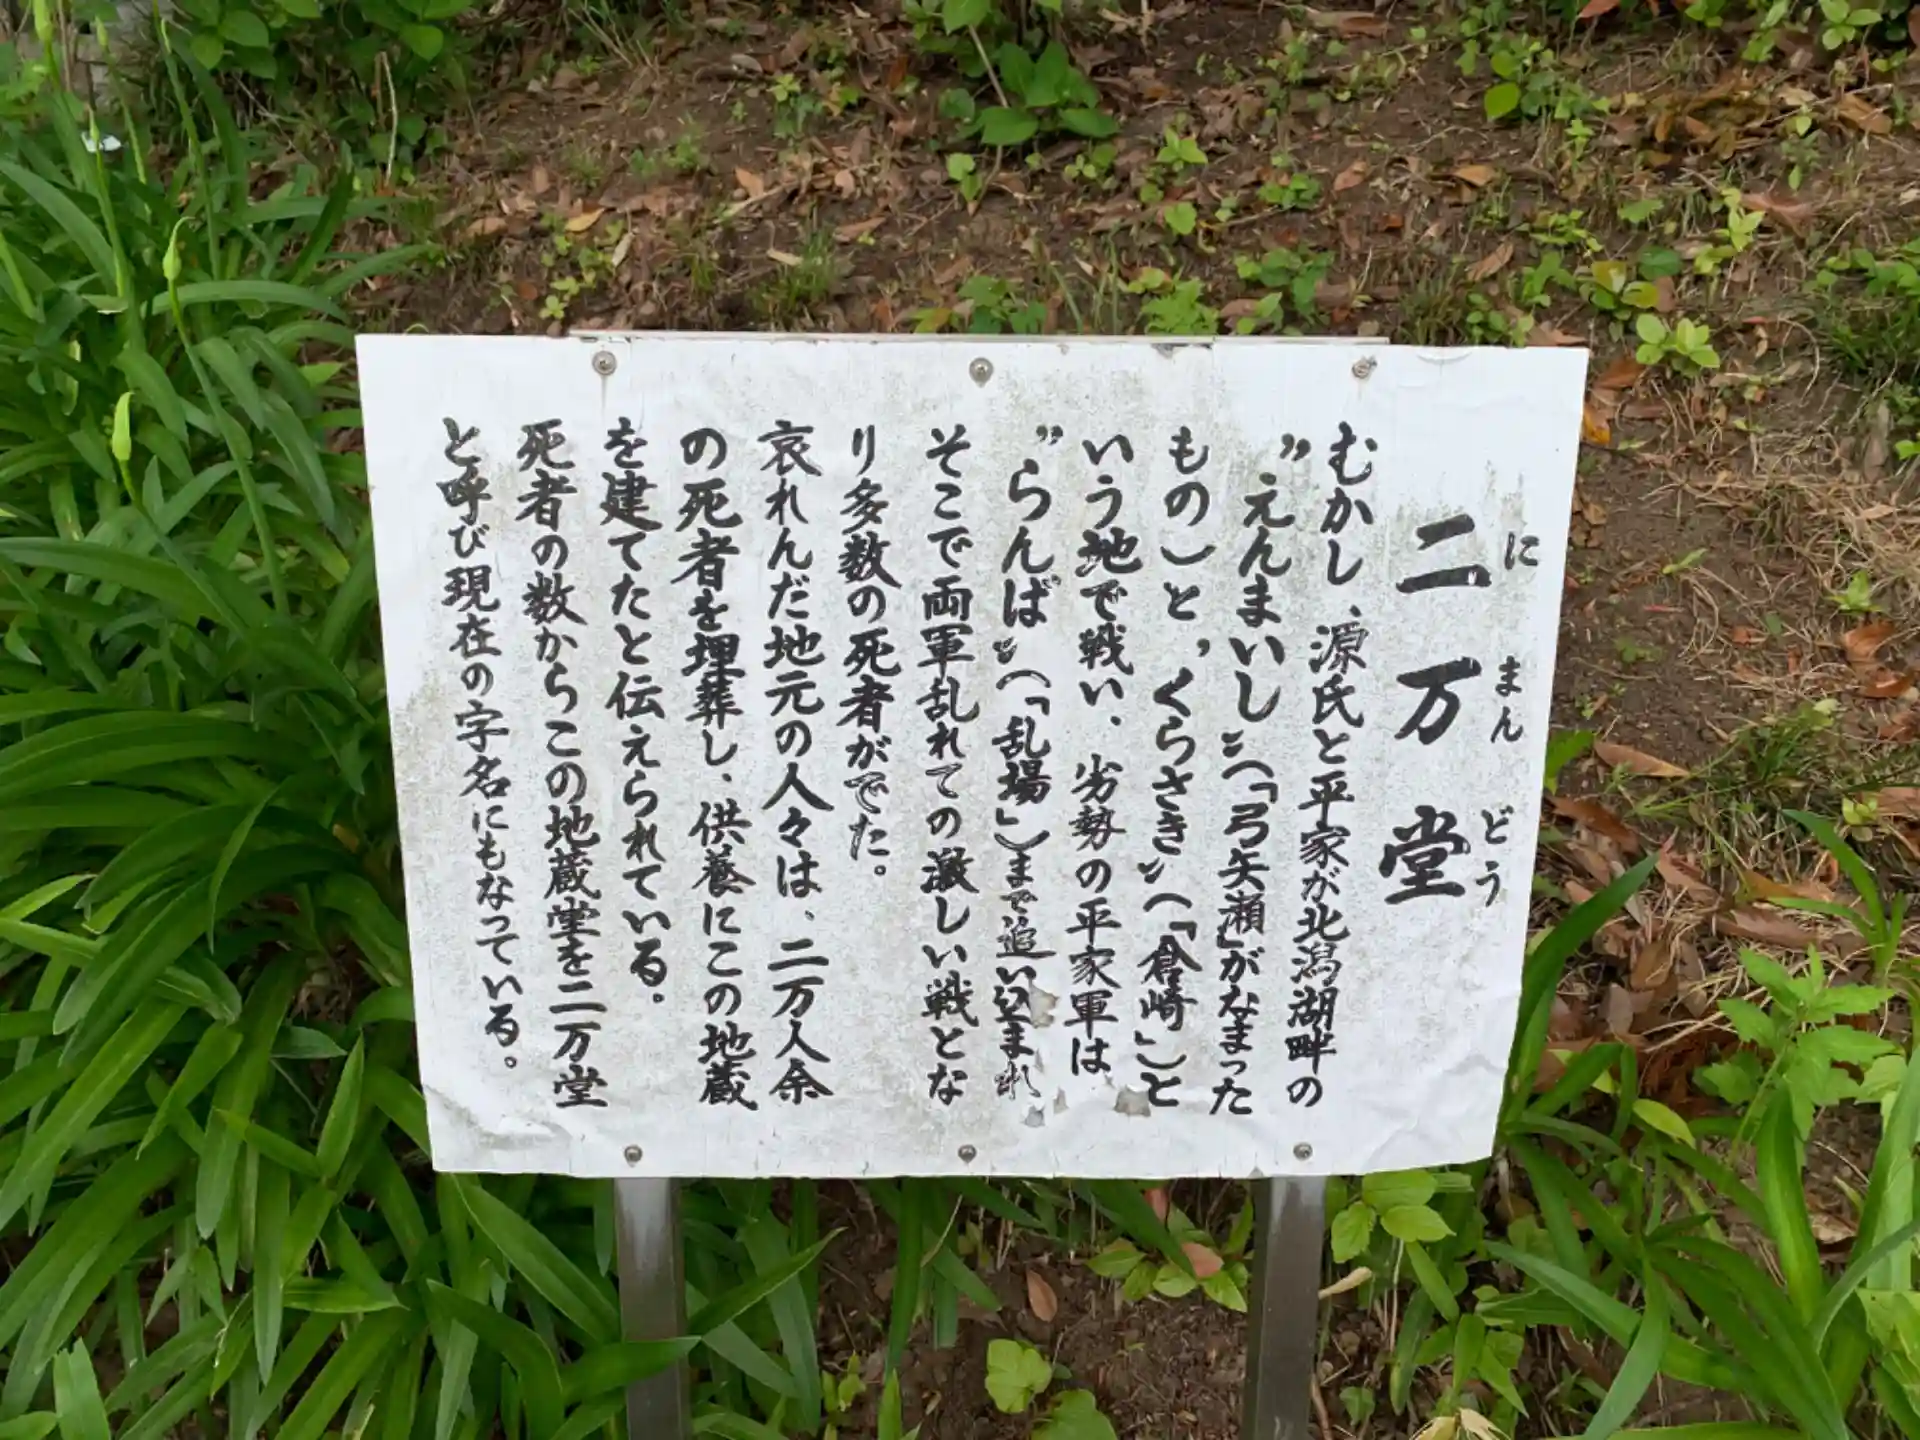 二万堂
にまんどう
むかし、源氏と平家が北潟湖畔の
〝えんまいし〟(「弓矢瀬」がなまった
もの)と、〝くらさき〟(「倉崎」)と
いう地で戦い、劣勢の平家軍は
〝らんば〟(「乱場」)まで追い込まれ
そこで両軍乱れての激しい戦とな
り多数の死者がでた。
哀れんだ地元の人々は、二万人余
の死者を埋葬し、供養にこの地蔵
を建てたと伝えられている。
死者の数からこの地蔵堂を二万堂
と呼び現在の字名にもなっている。